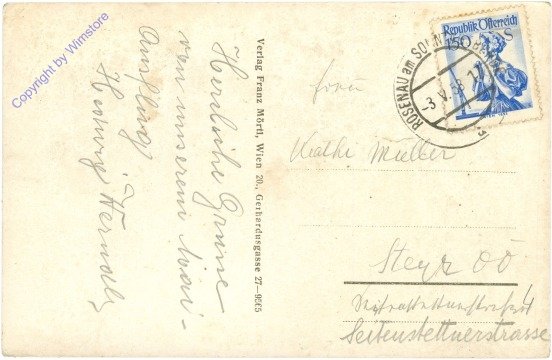 Copyright by Wimstore
Herzliche Grüsse
von unserem Mai-
Ausflug
Hedwig
Verlag Franz Mörtl, Wien 20., Gerhardusgasse 27—9665
Republik Österreich
1'50 S
ROSENAU am SONNTAGBERG
-3.V.58-17
Frau
Käthi Müller
Steyr OÖ
Seitenstettnerstrasse